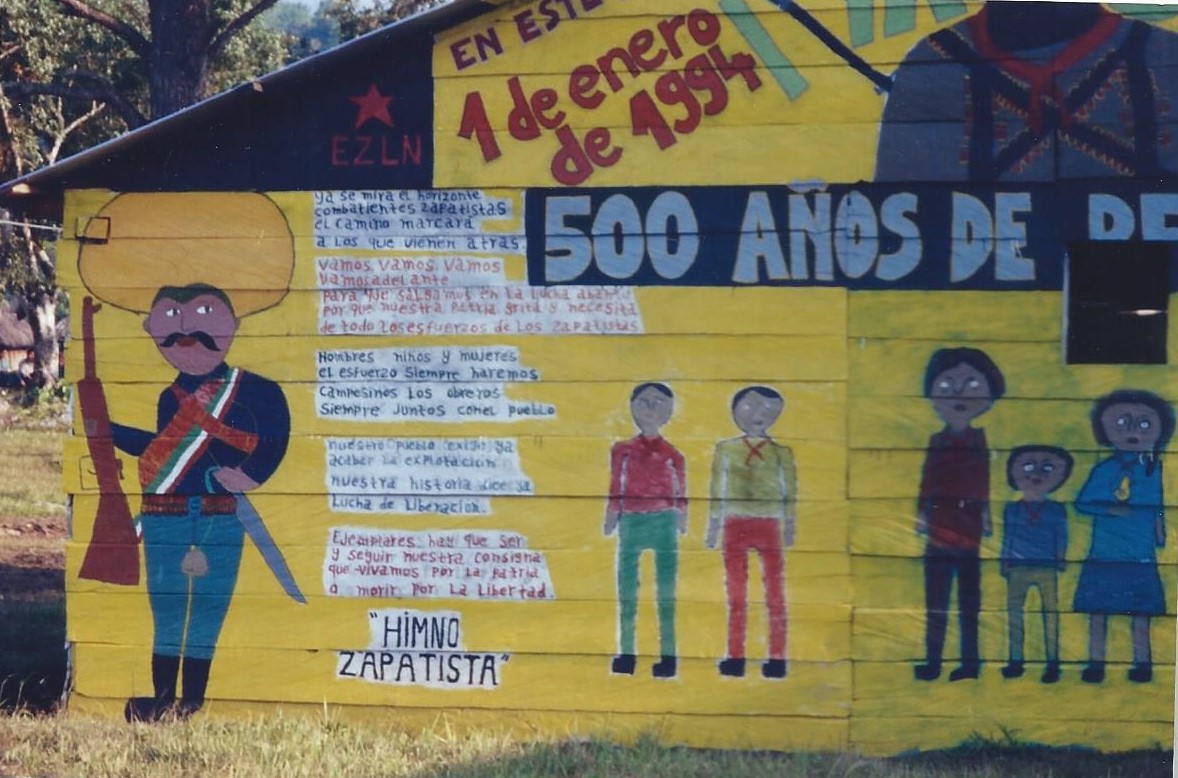 EN ESTE
1 de enero
de 1994
EZLN
500 AÑOS DE RE
ya se mira el horizonte
combatientes zapatistas
el camino marcara
a los que vienen atras.
vamos, vamos, vamos
vamos adelante
para que salgamos en la lucha
por que nuestra Patria grita y necesita
de todo los esfuerzos de los zapatistas
Hombres niños y mujeres
el esfuerzo siempre haremos
Campesinos los obreros
Siempre juntos con el pueblo
nuestro pueblo exige ya
acabar la explotacion
nuestra historia dice ya
Lucha de Liberacion.
Ejemplares hay que ser
y seguir nuestra consigna
que vivamos por la patria
o morir por La Libertad.
"HiMNO
ZAPATiSTA"